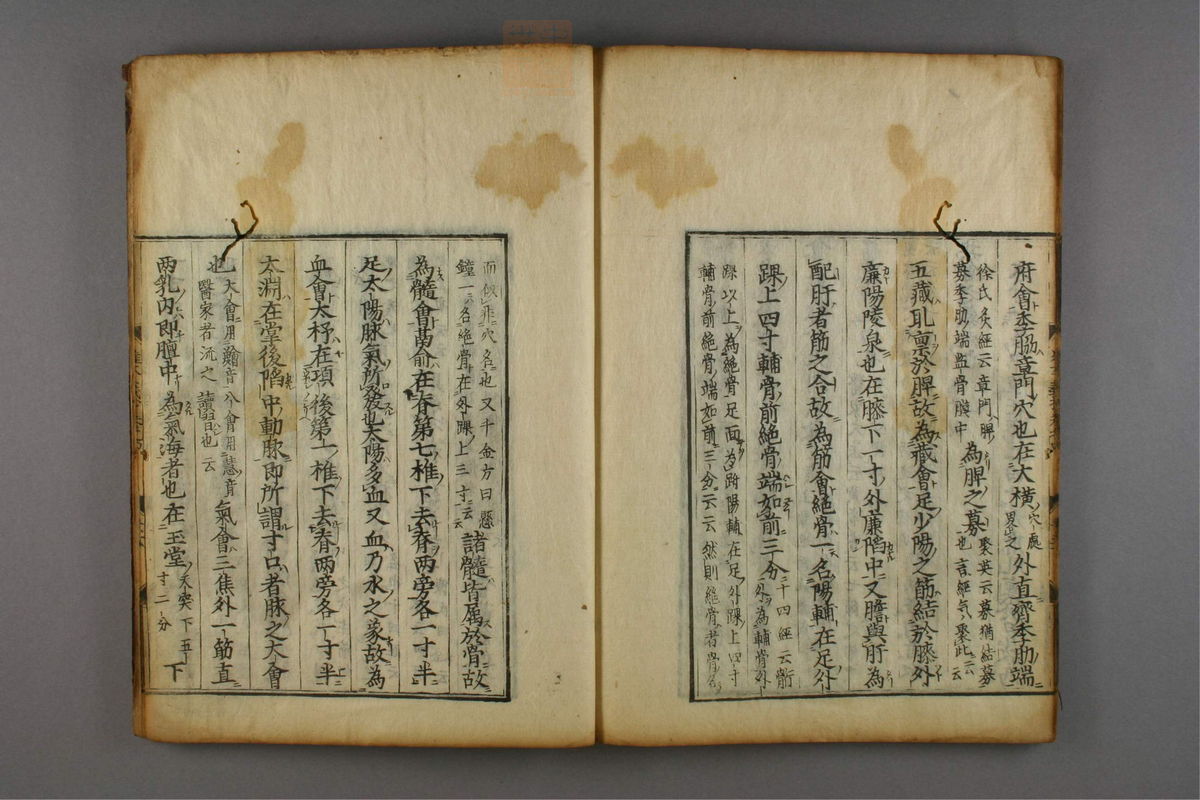 府會季脇章門穴也在大橫穴處畧シ之外直臍季肋端
徐氏灸經云章門脾募季肋端監骨膜中為脾之募聚英云募猶結募也言經氣聚此云云
五藏取稟於脾故為藏會足少陽之筋結於膝外
廉陽陵泉也在膝下一寸外廉陷中又膽與肝為
配肝者筋之合故為筋會絕骨一名陽輔在足外
踝上四寸輔骨前絕骨端如前三分十四經云䯒外為輔骨外
踝以上為絕骨足面為跗陽輔在足外踝上四寸輔骨前絕骨端如前三分云云然則絕骨者骨名
而似非穴名也又千金方曰懸鐘一名絕骨在外踝上三寸云云諸髓皆屬於骨故
為髓會膈俞在脊第七椎下去脊兩旁各一寸半
足太陽脉氣所發也太陽多血又血乃水之象故為
血會大杼在項後第一椎下去脊兩旁各一寸半
太淵在掌後陷中動脉即所謂寸口者脉之大會
也大會用膾音八會用慧音醫家者流之讀習也云氣會三焦外一筋直
两乳內即膻中為氣海者也在玉堂下天突下五寸二分